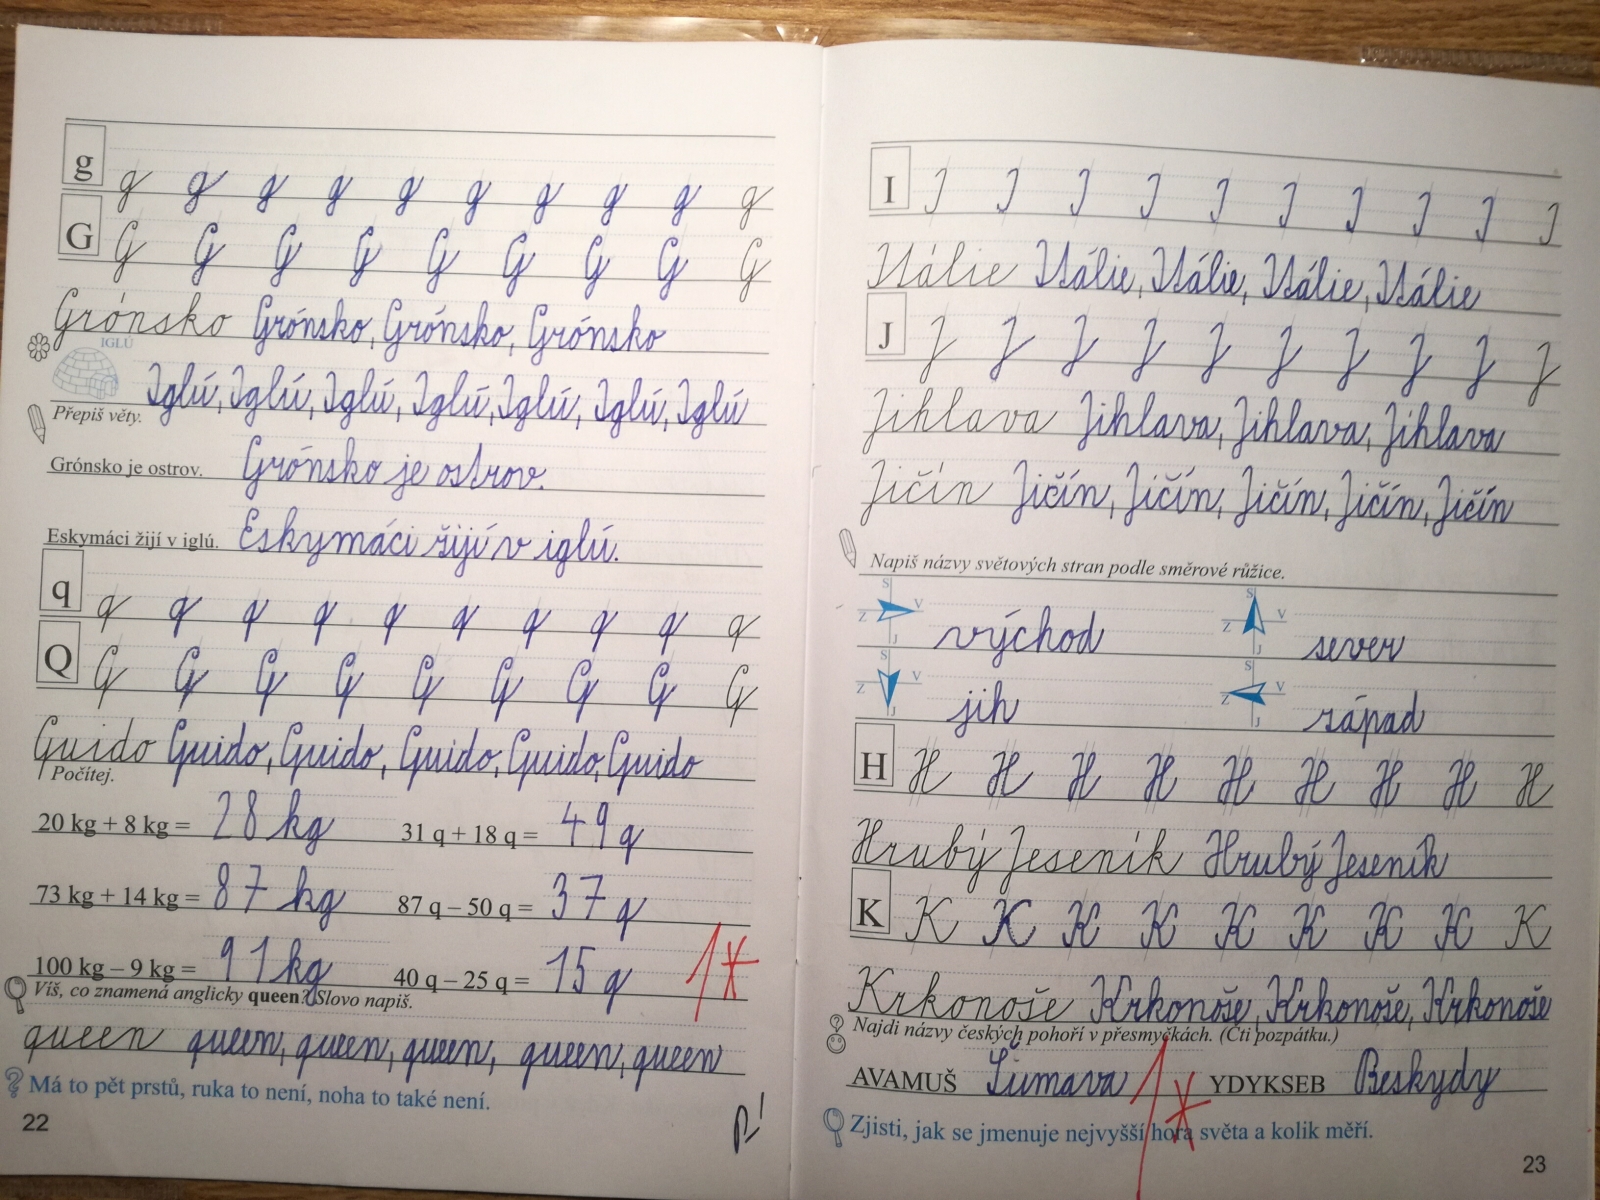 g g g g g g g g g g g
G G G G G G G G G G
Grónsko Grónsko, Grónsko, Grónsko
IGLÚ
Iglú, Iglú, Iglú, Iglú, Iglú, Iglú, Iglú
Přepiš věty.
Grónsko je ostrov. Grónsko je ostrov.
Eskymáci žijí v iglú. Eskymáci žijí v iglú.
q q q q q q q q q q q
Q Q Q Q Q Q Q Q Q Q
Quido Quido, Quido, Quido, Quido, Quido
Počítej.
20 kg + 8 kg = 28 kg 31 q + 18 q = 49 q
73 kg + 14 kg = 87 kg 87 q – 50 q = 37 q
100 kg – 9 kg = 91 kg 40 q – 25 q = 15 q
1*
Víš, co znamená anglicky queen? Slovo napiš.
queen queen, queen, queen, queen, queen
? Má to pět prstů, ruka to není, noha to také není.
22
I I I I I I I I I I I
Itálie Itálie, Itálie, Itálie, Itálie
J J J J J J J J J J J
Jihlava Jihlava, Jihlava, Jihlava
Jičín Jičín, Jičín, Jičín, Jičín, Jičín
Napiš názvy světových stran podle směrové růžice.
S Z V J východ S Z V J sever
S Z V J jih S Z V J západ
H H H H H H H H H H
Hrubý Jeseník Hrubý Jeseník
K K K K K K K K K K
Krkonoše Krkonoše, Krkonoše, Krkonoše
? Najdi názvy českých pohoří v přesmyčkách. (Čti pozpátku.)
AVAMUŠ Šumava 1* YDYKSEB Beskydy
Zjisti, jak se jmenuje nejvyšší hora světa a kolik měří.
23